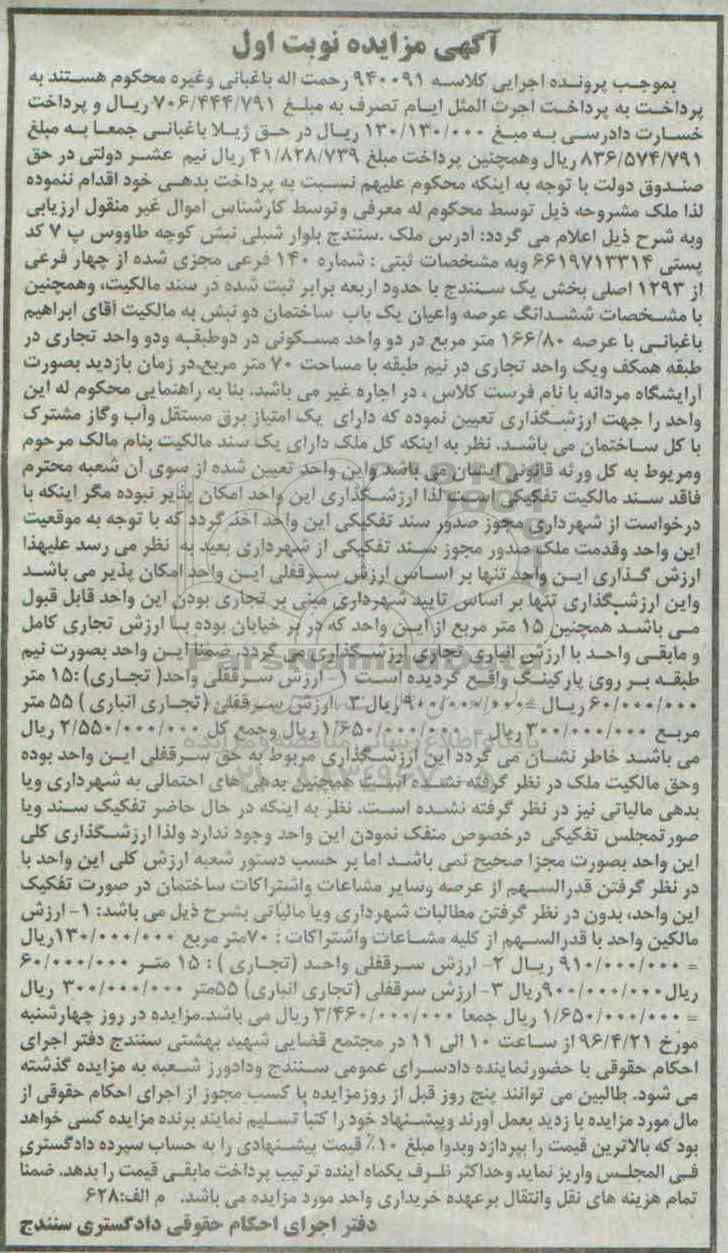 آگهی مزایده نوبت اول
بموجب پرونده اجرایی کلاسه ۹۴۰۰۹۱ رحمت اله باغبانی وغیره محکوم هستند به
پرداخت به پرداخت اجرت المثل ایام تصرف به مبلغ ۷۰۶/۴۴۴/۷۹۱ ریال و پرداخت
خسارت دادرسی به مبغ ۱۳۰/۱۳۰/۰۰۰ ریال در حق ژیلا باغبانی جمعا به مبلغ
۸۳۶/۵۷۴/۷۹۱ ریال وهمچنین پرداخت مبلغ ۴۱/۸۲۸/۷۳۹ ریال نیم عشر دولتی در حق
صندوق دولت با توجه به اینکه محکوم علیهم نسبت به پرداخت بدهی خود اقدام ننموده
لذا ملک مشروحه ذیل توسط محکوم له معرفی وتوسط کارشناس اموال غیر منقول ارزیابی
وبه شرح ذیل اعلام می گردد: آدرس ملک .سنندج بلوار شبلی نبش کوچه طاووس پ ۷ کد
پستی ۶۶۱۹۷۱۳۳۱۴ وبه مشخصات ثبتی : شماره ۱۴۰ فرعی مجزی شده از چهار فرعی
از ۱۲۹۳ اصلی بخش یک سنندج با حدود اربعه برابر ثبت شده در سند مالکیت، وهمچنین
با مشخصات ششدانگ عرصه واعیان یک باب ساختمان دو نبش به مالکیت آقای ابراهیم
باغبانی با عرصه ۱۶۶/۸۰ متر مربع در دو واحد مسکونی در دوطبقه ودو واحد تجاری در
طبقه همکف ویک واحد تجاری در نیم طبقه با مساحت ۷۰ متر مربع.در زمان بازدید بصورت
آرایشگاه مردانه با نام فرست کلاس ، در اجاره غیر می باشد. بنا به راهنمایی محکوم له این
واحد را جهت ارزشگذاری تعیین نموده که دارای یک امتیاز برق مستقل وآب وگاز مشترک
با کل ساختمان می باشد. نظر به اینکه کل ملک دارای یک سند مالکیت بنام مالک مرحوم
ومربوط به کل ورثه قانونی ایشان می باشد واین واحد تعیین شده از سوی آن شعبه محترم
فاقد سند مالکیت تفکیکی است لذا ارزشگذاری این واحد امکان پذیر نبوده مگر اینکه با
درخواست از شهرداری مجوز صدور سند تفکیکی این واحد اخذ گردد که با توجه به موقعیت
این واحد وقدمت ملک صدور مجوز سند تفکیکی از شهرداری بعید به نظر می رسد علیهذا
ارزش گذاری این واحد تنها بر اساس ارزش سرقفلی این واحد امکان پذیر می باشد
واین ارزشگذاری تنها بر اساس تایید شهرداری مبنی بر تجاری بودن این واحد قابل قبول
می باشد همچنین ۱۵ متر مربع از این واحد که در بر خیابان بوده با ارزش تجاری کامل
و مابقی واحد با ارزش انباری تجاری ارزشگذاری می گردد. ضمنا این واحد بصورت نیم
طبقه بر روی پارکینگ واقع گردیده است ۱- ارزش سرقفلی واحد( تجاری) :۱۵ متر
۶۰/۰۰۰/۰۰۰ ریال = ۹۰۰/۰۰۰/۰۰۰ریال ۲ .ارزش سرقفلی (تجاری انباری ) ۵۵ متر
مربع ۳۰۰/۰۰۰/۰۰۰ ریال = ۱/۶۵۰/۰۰۰/۰۰۰ ریال وجمع کل ۲/۵۵۰/۰۰۰/۰۰۰ ریال
می باشد خاطر نشان می گردد این ارزشگذاری مربوط به حق سرقفلی این واحد بوده
وحق مالکیت ملک در نظر گرفته نشده است همچنین بدهی های احتمالی به شهرداری ویا
بدهی مالیاتی نیز در نظر گرفته نشده است. نظر به اینکه در حال حاضر تفکیک سند ویا
صورتمجلس تفکیکی درخصوص منفک نمودن این واحد وجود ندارد ولذا ارزشگذاری کلی
این واحد بصورت مجزا صحیح نمی باشد اما بر حسب دستور شعبه ارزش کلی این واحد با
در نظر گرفتن قدرالسهم از عرصه وسایر مشاعات واشتراکات ساختمان در صورت تفکیک
این واحد، بدون در نظر گرفتن مطالبات شهرداری ویا مالیاتی بشرح ذیل می باشد: ۱- ارزش
مالکین واحد با قدرالسهم از کلیه مشاعات واشتراکات : ۷۰متر مربع ۱۳۰/۰۰۰/۰۰۰ریال
= ۹۱۰/۰۰۰/۰۰۰ ریال ۲- ارزش سرقفلی واحد (تجاری ) : ۱۵ متر ۶۰/۰۰۰/۰۰۰
ریال۹۰۰/۰۰۰/۰۰۰ریال ۳- ارزش سرقفلی (تجاری انباری) ۵۵متر ۳۰۰/۰۰۰/۰۰۰ ریال
= ۱/۶۵۰/۰۰۰/۰۰۰ ریال جمعا ۳/۴۶۰/۰۰۰/۰۰۰ ریال می باشد.مزایده در روز چهارشنبه
مورخ ۹۶/۴/۲۱ از ساعت ۱۰ الی ۱۱ در مجتمع قضایی شهید بهشتی سنندج دفتر اجرای
احکام حقوقی با حضورنماینده دادسرای عمومی سنندج ودادورز شعبه به مزایده گذشته
می شود. طالبین می توانند پنج روز قبل از روزمزایده با کسب مجوز از اجرای احکام حقوقی از
مال مورد مزایده با زدید بعمل آورند وپیشنهاد خود را کتبا تسلیم نمایند برنده مزایده کسی خواهد
بود که بالاترین قیمت را بپردازد وبدوا مبلغ ۱۰٪ قیمت پیشنهادی را به حساب سپرده دادگستری
فی المجلس واریز نماید وحداکثر ظرف یکماه آینده ترتیب پرداخت مابقی قیمت را بدهد. ضمناً
تمام هزینه های نقل وانتقال برعهده خریداری واحد مورد مزایده می باشد. م الف:۶۲۸
دفتر اجرای احکام حقوقی دادگستری سنندج